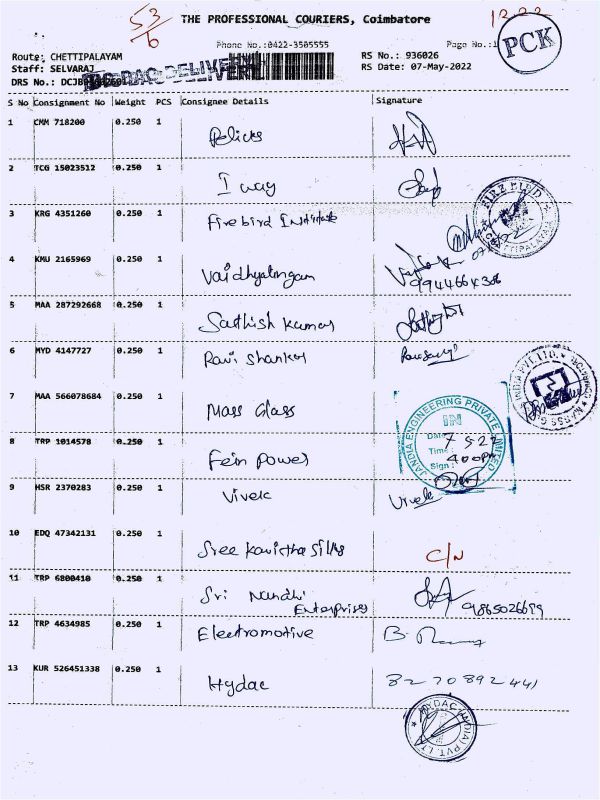 53
6
THE PROFESSIONAL COURIERS, Coimbatore
Phone No.:0422-3505555
Page No.:1
PCK
Route: CHETTIPALAYAM
RS No.: 936026
Staff: SELVARAJ
RS Date: 07-May-2022
DRS No.:
S No Consignment No Weight PCS Consignee Details Signature
1 CMM 718200 0.250 1 Pelicks
2 TCG 15023512 0.250 1 I way
3 KRG 4351260 0.250 1 Firebird Institute
4 KMU 2165969 0.250 1 Vaidhyalingam
9944664306
5 MAA 287292668 0.250 1 Sathish Kumar
6 MYD 4147727 0.250 1 Ravi Shankar
7 MAA 566078684 0.250 1 Mass Glass
JANDIA ENGINEERING PRIVATE LIMITED
IN
Date 7 5 22
Time 4 00 PM
Sign :
8 TRP 1014578 0.250 1 Fein Power
9 HSR 2370283 0.250 1 Vivek Vivek
10 EDQ 47342131 0.250 1 Sree Kavistha Silks C/N
11 TRP 6800410 0.250 1 Sri Nandhi
Enterprises
12 TRP 4634985 0.250 1 Electromotive
13 KUR 526451338 0.250 1 Hydac 8270892441
HYDAC (INDIA) PVT. LTD